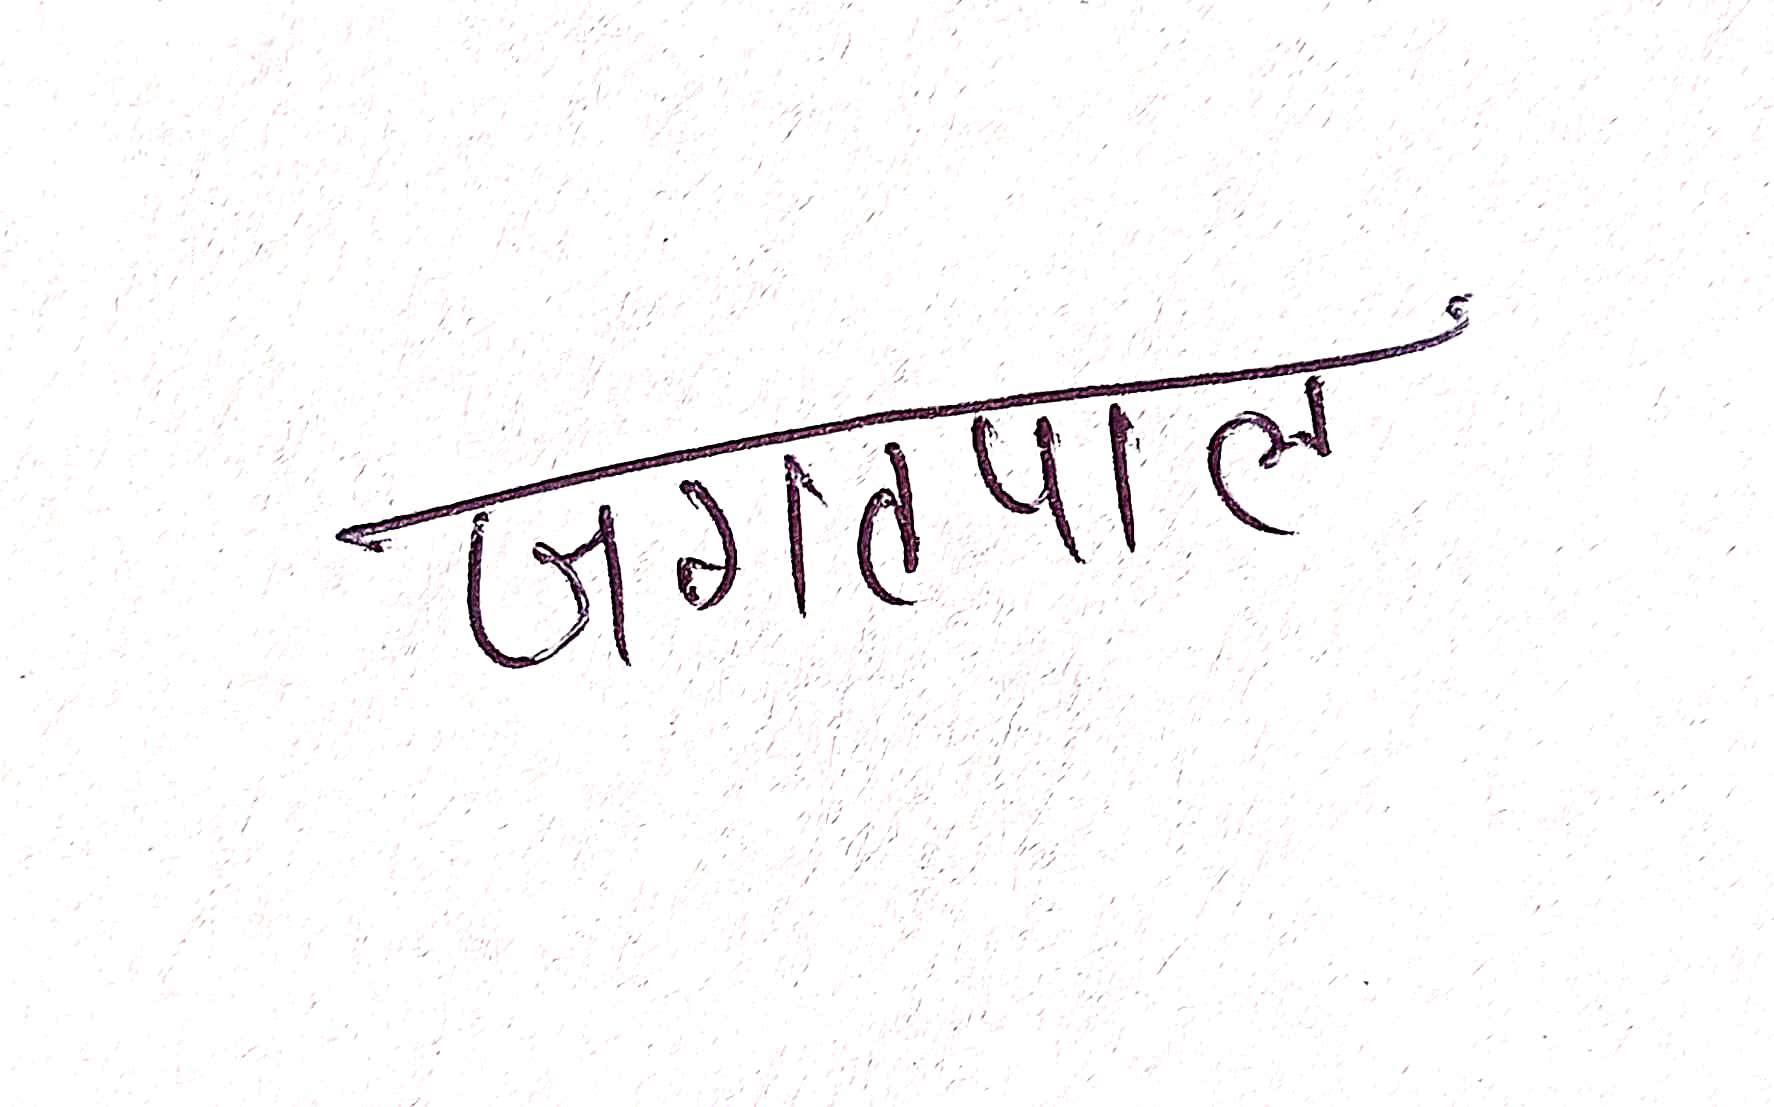 जगतपाल